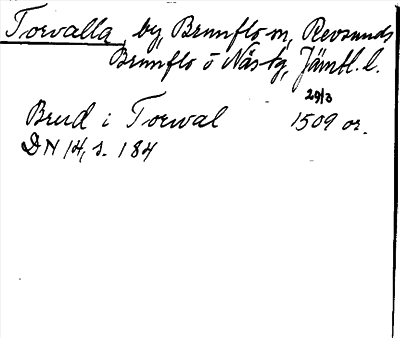 Torvalla, by, Brunflo sn, Revsunds
Brunflo o Näs tg, Jämtl. l.
29/3
Brud i Torwal 1509 or.
DN 14, s. 184